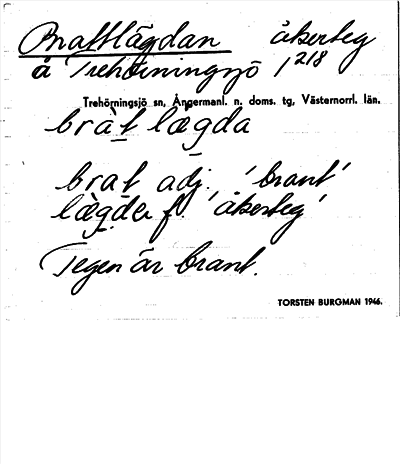 Brattlägdan åkerteg
å Trehörningsjö 1 218
Trehörningsjö sn, Ångermanl. n. doms. tg, Västernorrl. län.
brat lægda
brat adj. 'brant'
lægde f. 'åkerteg'
Tegen är brant.
TORSTEN BURGMAN 1946.